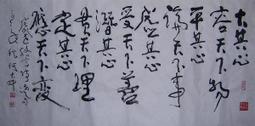 大其心
容天下物
平其心
論天下事
虚其心
受天下善
潛其心
观天下理
定其心
应天下变